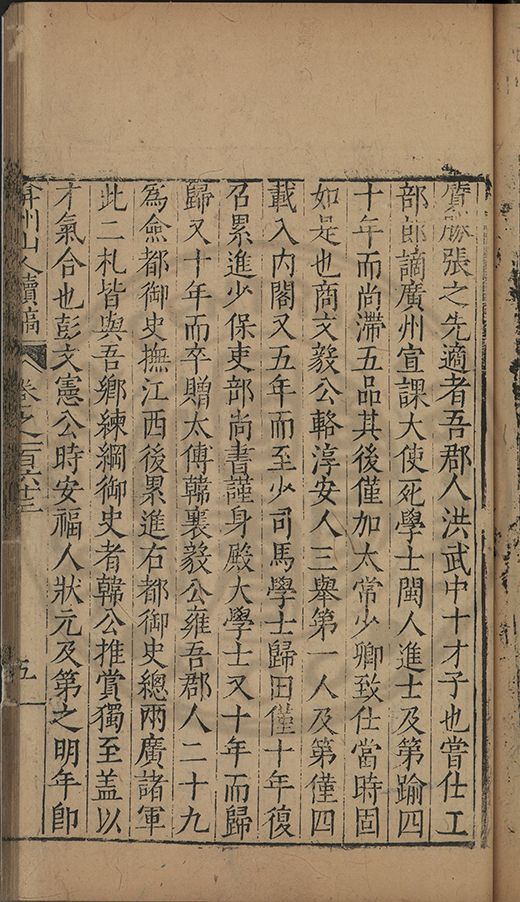 贋勝張之先適者吾郡人洪武中十才子也嘗仕工
部郎謫廣州宣課大使死學士閩人進士及第踰四
十年而尚滯五品其後僅加太常少卿致仕當時固
如是也商文毅公輅淳安人三舉第一人及第僅四
載入内閣又五年而至少司馬學士歸田僅十年復
召累進少保吏部尚書謹身殿大學士又十年而歸
歸又十年而卒贈太傅韓襄毅公雍吾郡人二十九
為僉都御史撫江西後累進右都御史總兩廣諸軍
此二札皆與吾鄉練綱御史者韓公推賞獨至盖以
才氣合也彭文憲公時安福人狀元及第之明年卽
弇州山人續稿 卷之一百六十三 五